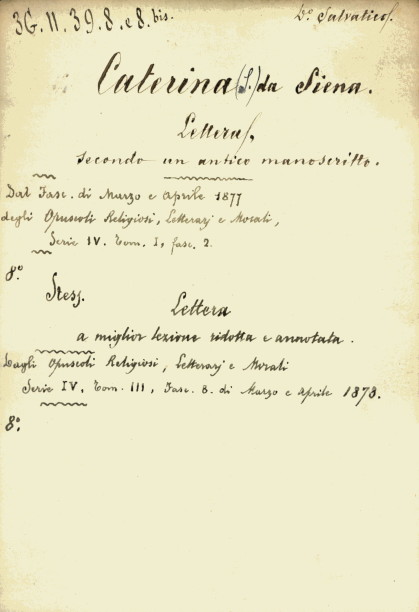 3G. 11. 39. 8. e 8. bis.
D.º Salvatico
Caterina (S.) da Siena.
Lettera,
secondo un antico manoscritto.
Dal Fasc. di Marzo e Aprile 1877
degli Opuscoli Religiosi, Letterarj e Morali,
Serie IV. Tom. I, fasc. 2.
8º.
Stess.
Lettera
a miglior lezione ridotta e annotata.
Dagli Opuscoli Religiosi, Letterarj e Morali
Serie IV, Tom. III, Fasc. 8. di Marzo e Aprile 1878.
8º.